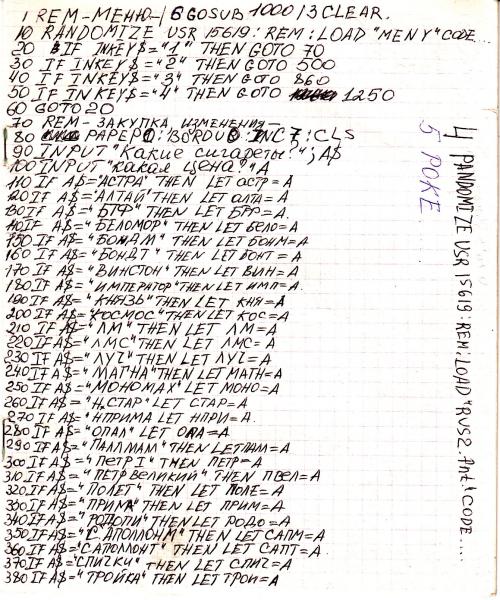 1 REM-МЕНЮ-/6 GOSUB 1000/3 CLEAR.
10 RANDOMIZE USR 15619: REM: LOAD "MENY" CODE...
20 IF INKEY$="1" THEN GOTO 70
30 IF INKEY$="2" THEN GOTO 500
40 IF INKEY$="3" THEN GOTO 860
50 IF INKEY$="4" THEN GOTO 1250
60 GOTO 20
70 REM-ЗАКУПКА, ИЗМЕНЕНИЯ-
80 PAPEP0:BORDU0:INC7:CLS
90 INPUT "Какие сигареты?";A$
100 INPUT "какая цена?"A
110 IF A$="АСТРА" THEN LET астр=A
120 IF A$="АЛТАЙ" THEN LET алта=A
130 IF A$="БТФ" THEN LET БТФ=A.
140 IF A$="БЕЛОМОР" THEN LET БЕЛО=A
150 IF A$="БОНДМ" THEN LET БОНМ=A
160 IF A$="БОНДТ" THEN LET БОНТ=A
170 IF A$="ВИНСТОН" THEN LET ВИН=A
180 IF A$="ИМПЕРАТОР" THEN LET ИМП=A
190 IF A$="КНЯЗЬ" THEN LET КНЯ=A
200 IF A$="КОСМОС" THEN LET КОС=A
210 IF A$="ЛМ" THEN LET ЛМ=A
220 IF A$="ЛМС" THEN LET ЛМС=A
230 IF A$="ЛУЧ" THEN LET ЛУЧ=A
240 IF A$="МАГНА" THEN LET МАГН=A
250 IF A$="МОНОМАХ" LET МОНО=A
260 IF A$="Н,СТАР" LET СТАР=A
270 IF A$="НПРИМА LET НПРИ=A.
280 IF A$="ОПАЛ" LET ОПА=A
290 IF A$="ПАЛЛМАЛ" THEN LET ПАЛ=A
300 IF A$="ПЕТР I" THEN ПЕТР=A
310 IF A$="ПЕТР ВЕЛИКИЙ" THEN ПВЕЛ=A
320 IF A$="ПОЛЕТ" THEN LET ПОЛЕ=A
330 IF A$="ПРИМА" THEN LET ПРИМ=A
340 IF A$="РОДОПИ" THEN LET РОДО=A
350 IF A$="С АПОЛЛОНМ" THEN LET САПМ=A
360 IF A$="САПОЛЛОНТ" THEN LET САПТ=A.
370 IF A$="СПИЧКИ" THEN LET СПИЧ=A
380 IF A$="ТРОЙКА" THEN LET ТРОИ=A
4 RANDOMIZE USR 15619:REM:LOAD "RUS2.fnt." CODE....
5 POKE